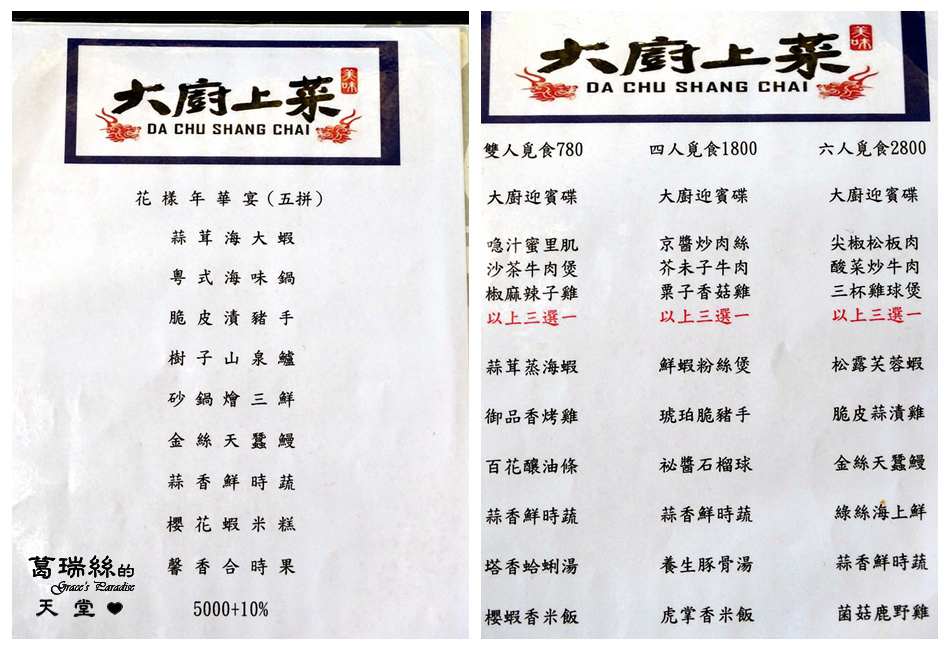 大廚上菜
美味
DA CHU SHANG CHAI
花樣年華宴(五拼)
蒜茸海大蝦
粵式海味鍋
脆皮漬豬手
樹子山泉鱸
砂鍋燴三鮮
金絲天蠶鰻
蒜香鮮時蔬
櫻花蝦米糕
馨香合時果
5000+10%
葛瑞絲的
Grace's Paradise
天堂
大廚上菜
美味
DA CHU SHANG CHAI
雙人覓食780
大廚迎賓碟
喼汁蜜里肌
沙茶牛肉煲
椒麻辣子雞
以上三選一
蒜茸蒸海蝦
御品香烤雞
百花釀油條
蒜香鮮時蔬
塔香蛤蜊湯
櫻蝦香米飯
四人覓食1800
大廚迎賓碟
京醬炒肉絲
芥末子牛肉
粟子香菇雞
以上三選一
鮮蝦粉絲煲
琥珀脆豬手
祕醬石榴球
蒜香鮮時蔬
養生豚骨湯
虎掌香米飯
六人覓食2800
大廚迎賓碟
尖椒松板肉
酸菜炒牛肉
三杯雞球煲
以上三選一
松露芙蓉蝦
脆皮蒜漬雞
金絲天蠶鰻
綠絲海上鮮
蒜香鮮時蔬
菌菇鹿野雞